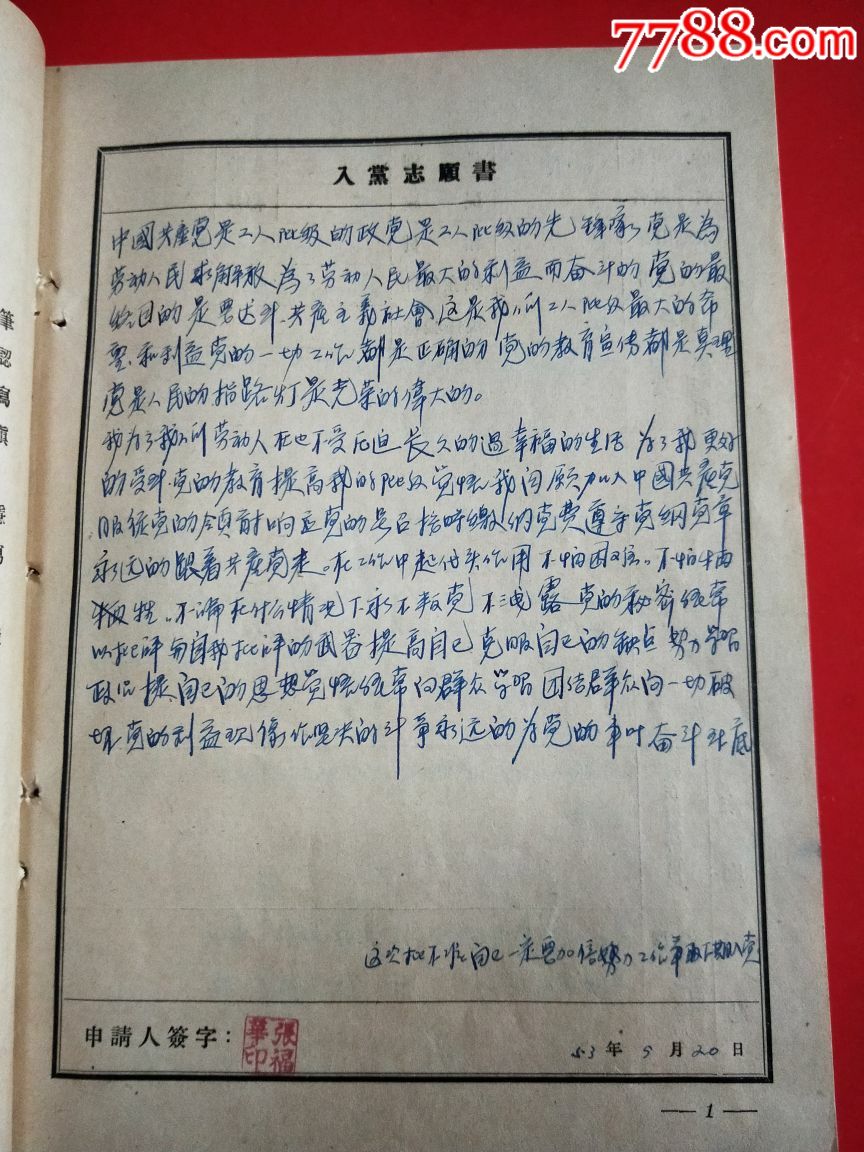 7788.com
入黨志願書
中國共產党是工人阶级的政党是工人阶级的先鋒隊 党是為
劳动人民求解放 為了劳动人民最大的利益而奋斗的 党的最
终目的是要达到 共産主義社會 这是我们工人阶级最大的希
望 和利益党的一切工作都是正确的 党的教育宣传都是真理
党是人民的指路灯是光荣的偉大的。
我为了我们劳动人民不受压迫 長久的過幸福的生活 为了我更好
的受到党的教育提高我的阶级覚悟我自願加入中國共産党
服從党的領導响应党的号召按時缴纳党費遵守党綱党章
永远的跟着共産党走。在工作中起代头作用不怕困难。不怕牺
牲。不論在什么情况下永不叛党 不洩露党的秘密经常
以批评与自我批评的武器提高自己克服自己的缺点 努力学習
政治提自己的思想覚悟经常向群众学習 团结群众向一切破
坏党的利益现像作坚决的斗争永远的为党的事业奋斗到底
这次批不准自己一定要加倍努力工作争取下期入党
申請人簽字：
張福華印
53年5月20日
— 1 —
筆
認
寫